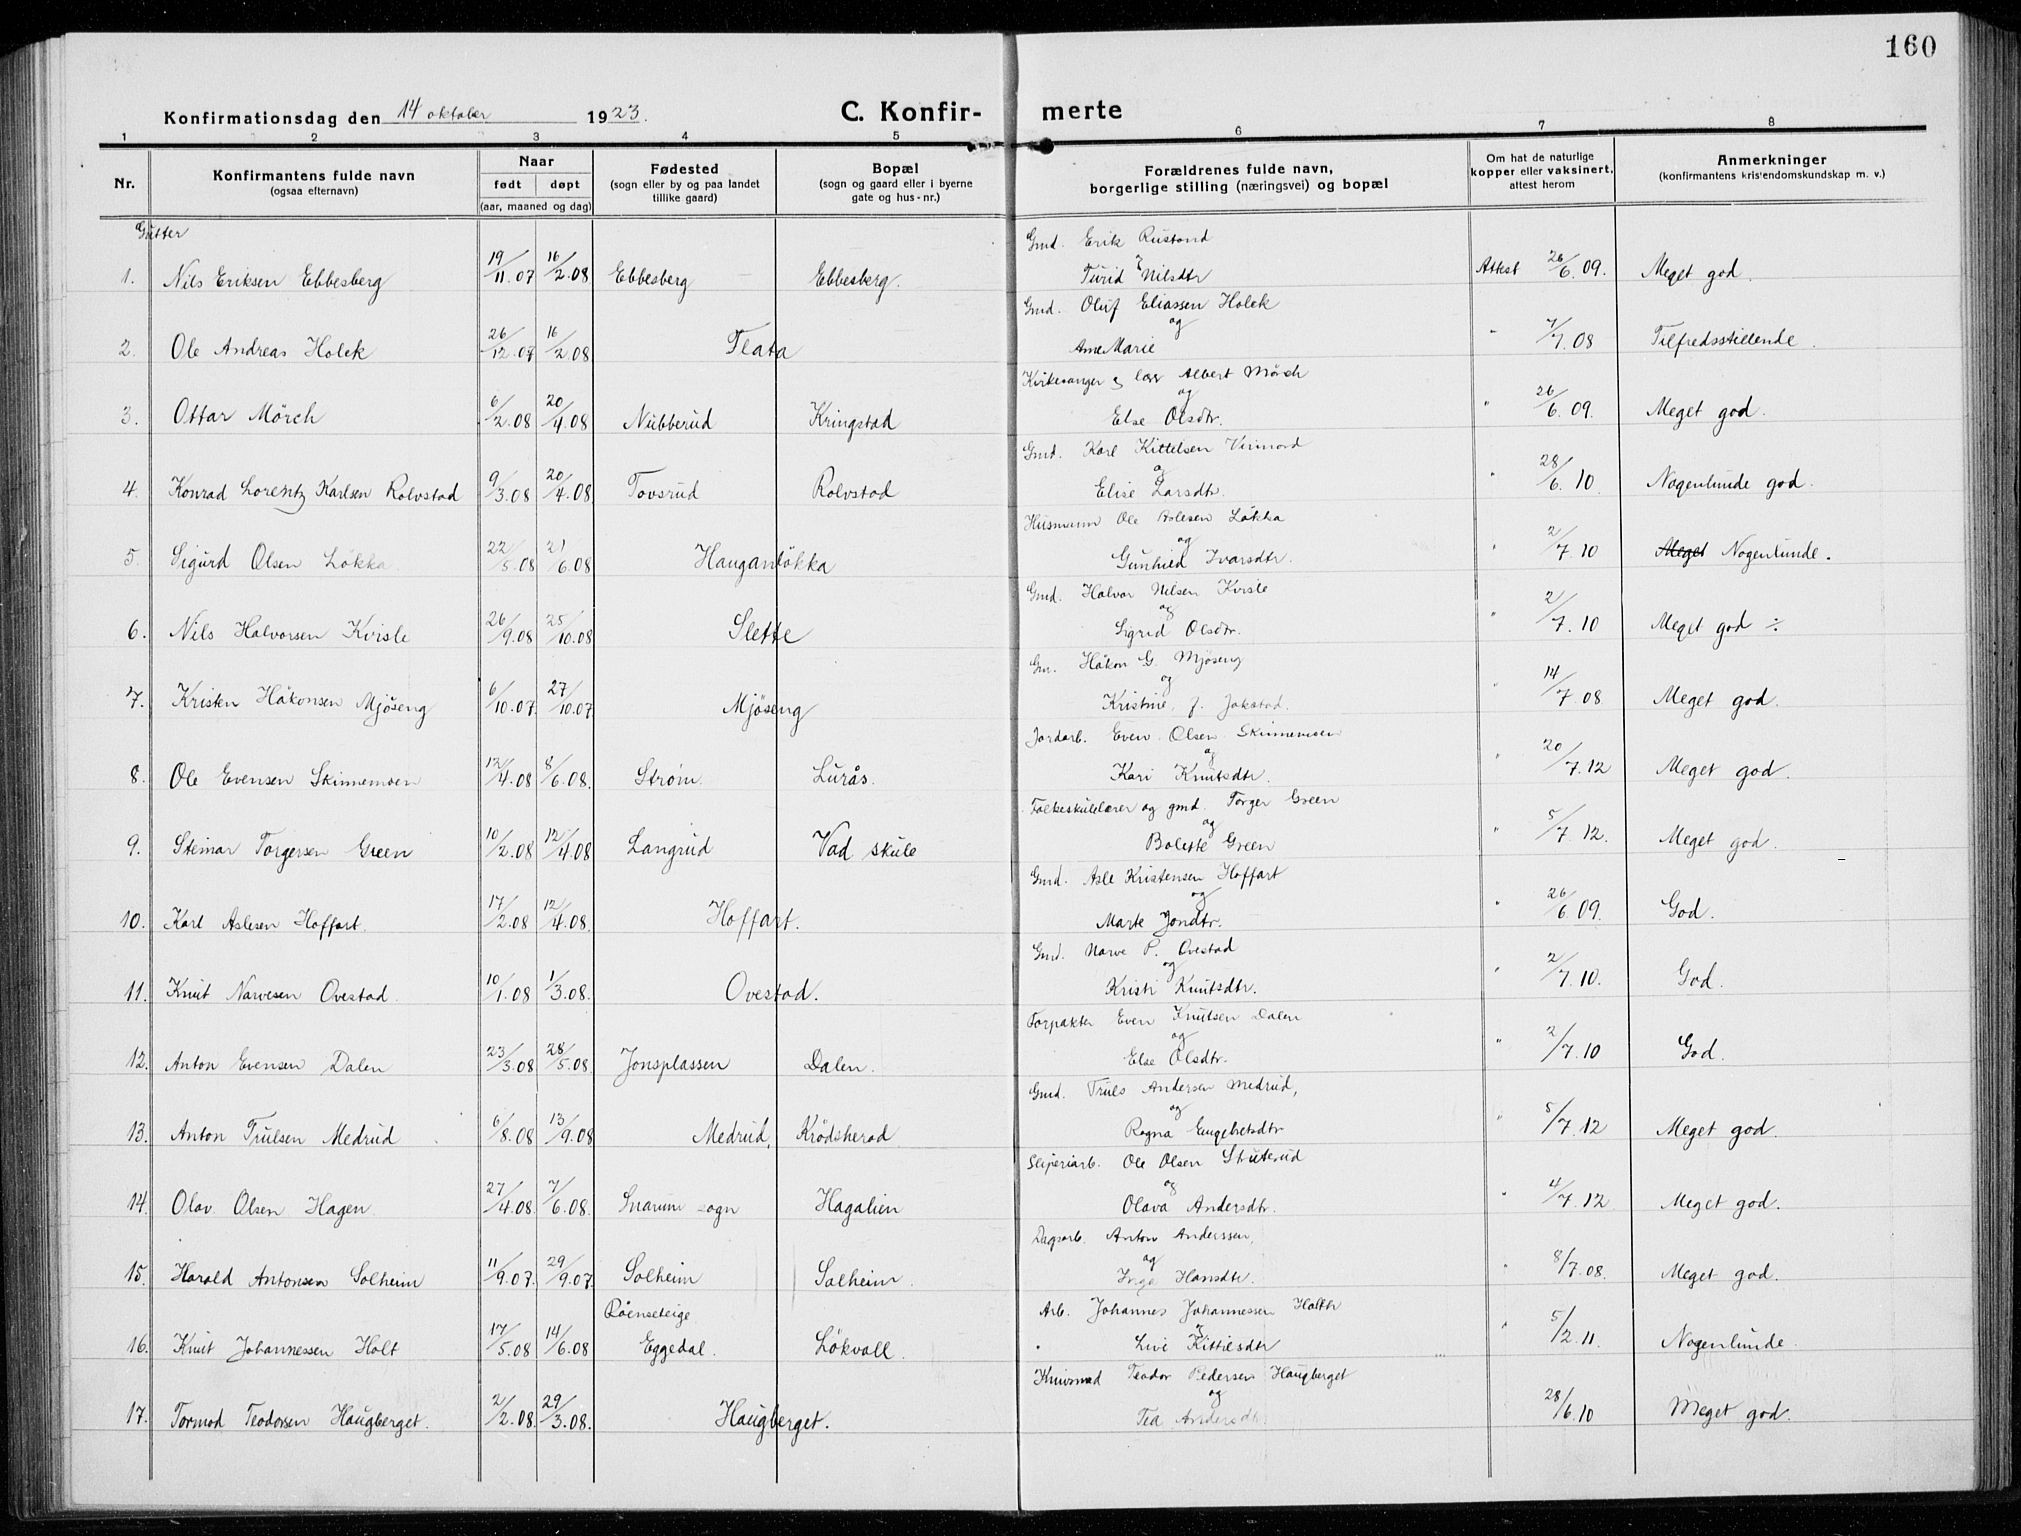 160
Konfirmationsdag den 14 oktober 1923.
C. Konfir- merte
1 2 3 4 5 6 7 8
Nr. | Konfirmantens fulde navn (ogsaa efternavn) | Naar født døpt (aar, maaned og dag) | Fødested (sogn eller by og paa landet tillike gaard) | Bopæl (sogn og gaard eller i byerne gate og hus-nr.) | Forældrenes fulde navn, borgerlige stilling (næringsvei) og bopæl | Om hat de naturlige kopper eller vaksinert, attest herom | Anmerkninger (konfirmantens kristendomskundskap m. v.)
Gutter
Gmd. Erik Rustand
1. Nils Eriksen Ebbesberg 19/11.07 16/2.08 Ebbesberg Ebbesberg. Turid Nilsdtr Attest 26/6.09. Meget god.
Gmd. Oluf Eliassen Holek
og
2. Ole Andreas Holek 26/12.07 16/2.08 Teata Ane Marie " 7/7.08 Tilfredsstillende.
Kirkesanger og lærer Albert Mörch
og
3. Ottar Mörch 6/2.08 20/4.08 Nubberud Kringstad Else Olsdtr. " 26/6.09. Meget god.
Gmd. Karl Kittelsen Virmord
og
4. Konrad Lorentz Karlsen Rolvstad 9/3.08 20/4.08 Tovsrud Rolvstad Elise Larsdtr. " 28/6.10. Nogenlunde god.
Husmann Ole Aslesen Lökka
og
5. Sigurd Olsen Lökka 22/5.08 21/6.08 Hauganlökka Gunhild Ivarsdtr. " 2/7.10 Meget Nogenlunde.
Gmd. Halvor Nilsen Kvisle
og
6. Nils Halvorsen Kvisle 26/9.08 25/10.08 Slette Sigrid Olsdtr. " 2/7.10 Meget god ÷
Gm. Håkon G. Mjöseng
og
7. Kristen Håkonsen Mjöseng 6/10.07 27/10.07 Mjöseng Kristine, f. Jokstad. " 14/7.08 Meget god.
Jordarb. Even Olsen Skinnemoen
og
8. Ole Evensen Skinnemoen 12/4.08 8/6.08. Strøm Lurås. Kari Knutsdtr. " 20/7.12 Meget god.
Folkeskulelærer og gmd. Torger Green
og
9. Steinar Torgersen Green 10/2.08 12/4.08 Langrud Vad skule Bolette Green " 5/7.12. Meget god.
Gmd. Asle Kristensen Hoffart
og
10. Karl Aslesen Hoffart. 17/2.08 12/4.08. Hoffart. Marte Jondtr. " 26/6.09. God.
Gmd. Narve P. Ovestad
og
11. Knut Narvesen Ovestad. 10/1.08 1/3.08. Ovestad. Kristi Knutsdtr. " 2/7.10. God.
Forpakter Even Knutsen Dalen
og
12. Anton Evensen Dalen 23/3.08 28/5.08. Jonsplassen Dalen. Else Olsdtr. " 2/7.10 God.
Gmd. Truls Andersen Medrud,
og
13. Anton Trulsen Medrud 6/8.08 13/9.08 Medrud, Krödsherad Ragna Engebretsdtr " 5/7.12 Meget god.
Sliperiarb. Ole Olsen Struterud
og
14. Olav Olsen Hagen 27/4.08. 7/6.08. Snarum sogn Hagalien Olava Andersdtr. " 4/7.12 Meget god.
Dagarb. Anton Anderssen,
og
15. Harald Antonsen Solheim 11/9.07. 29/9.07. Solheim Solheim. Inga Hansdtr. " 8/7.08. Meget god.
Röenseteige Arb. Johannes Johannessen Holth
16. Knut Johannessen Holt 17/5.08 14/6.08 Eggedal. Lökvoll. Livi Kittilsdtr " 5/2.11. Nogenlunde.
Teodor Pedersen Haugberget
og
17. Tormod Teodorsen Haugberget. 2/2.08. 29/3.08. Haugberget. Tea Andersdtr. 28/6.10 Meget god.